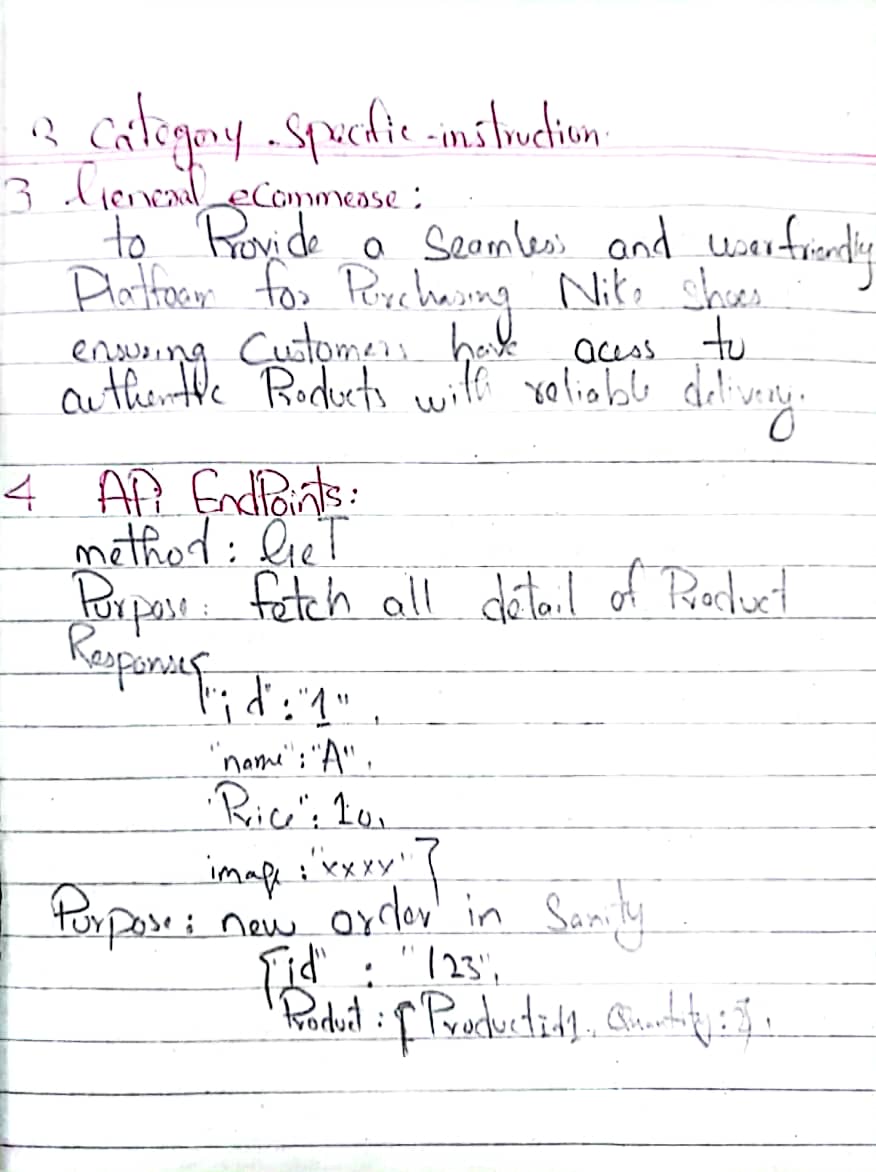 3 Category-Specific-instruction.
3 General eCommerse:
to Provide a Seamless and userfriendly
Platfoam for Purchasing Nike shoes
ensuring Customers have acess to
authentic Products with reliable delivery.
4 APi EndPoints:
method: GeT
Purpose: fetch all detail of Product
Response{
"id":"1",
"name":"A",
"Price": 10,
image:"xxxx"}
Purpose: new order in Sanity
{id" : "123",
Product:[Productid1, Quantity: